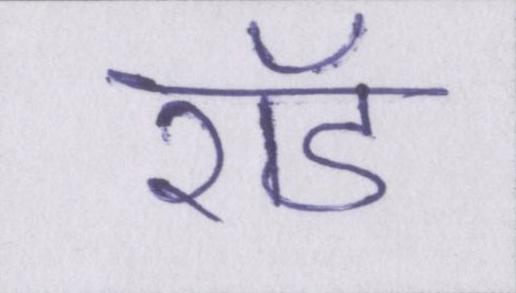 रॉड